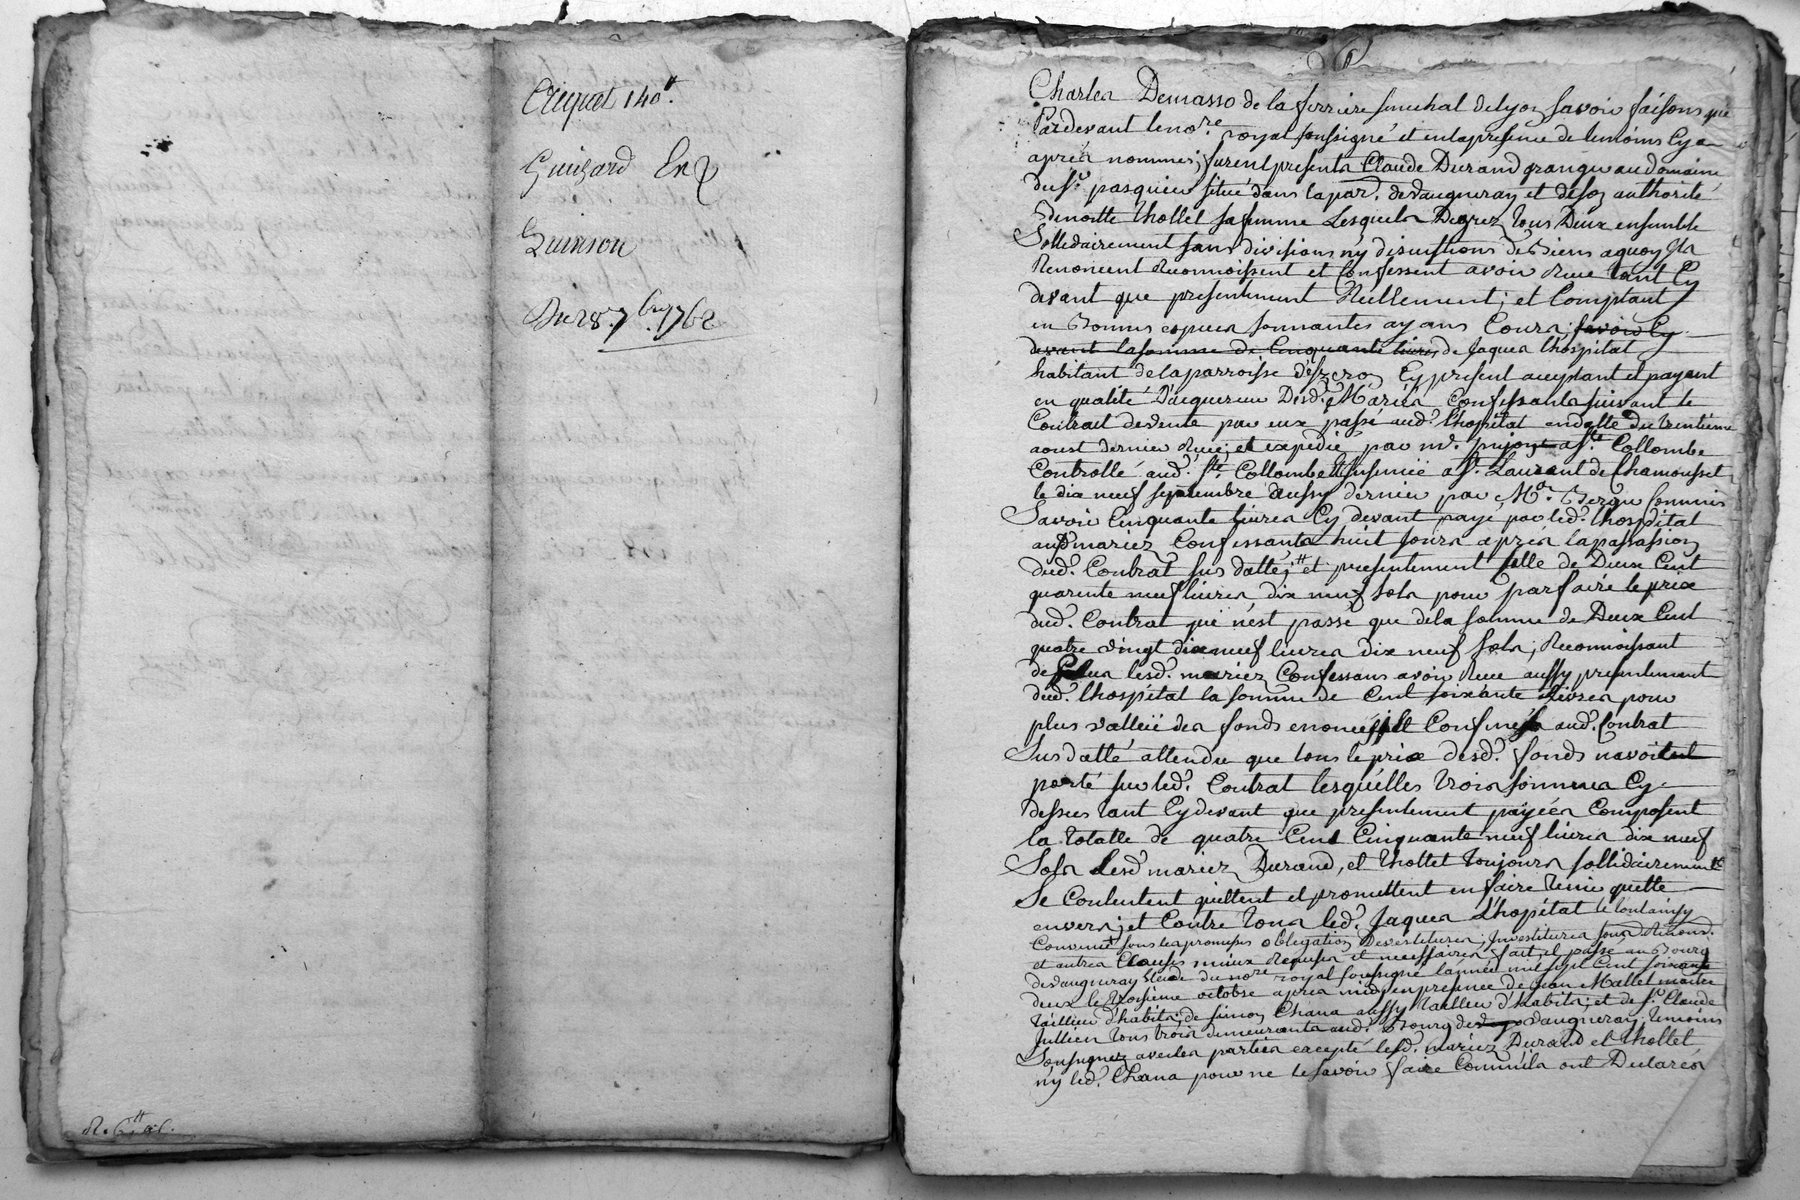 Criquet 140#.
Guichard En
Quinson
Du 28. 7bre 1762
R. 6# 6s.
Charles Demasso de la ferriere senechal de lyon savoir faisons que
Pardevant le nore. royal soussigné et en la presence de temoins Cy
apres nommes; furent presents Claude Durand granger au domaine
du sr. pasquier situé dans la par. de vaugneray et de son authorité
Benoitte thollet sa femme Lesquels De grez tous Deux ensemble
Sollidairement sans divisions ny discussions de Biens a quoy Ils
Renoncent Reconnoissent et Confessent avoir Receu tant Cy
devant que presentement Reellement; et Comptant
en Bonnes especes sonnantes ayans Cours; savoir Cy
devant la somme de Cinquante livres de Jaques lhospital
habitant de la parroisse d'yzeron Cy present aceptant et payant
en qualité D'acquereur Desd. Mariés Confessants suivant le
Contrait de vente par eux passé aud. lhopital en datte du trentieme
aoust dernier Receu; et expedié par me. pujon a ste. Collombe
Controllé aud. ste. Collombe et Insinué a st. Laurant de Chamousset
le dix neuf septembre aussy dernier par Mr. Berger Commis
Savoir Cinquante livres Cy devant payé par led. lhospital
auxd mariez Confessants huit jours apres la passassion
dud. Contrat sus datté; et presentement celle de Deux Cent
quarente neuf livres dix neuf sols pour parfaire le prix
dud. Contrat qui n'est passé que de la somme de Deux Cent
quatre vingt dix neuf livres dix neuf sols; Reconnoissant
de plus lesd. mariez Confessans avoir Receu aussy presentement
dud. lhospital la somme de Cent soixante livres pour
plus valleü des fonds enoncés et Confinés aud. Contrat
Sus datté attendu que tous le prix desd. fonds n'avoit
porté sur led. Contrat lesquelles trois sommes Cy
dessus tant Cy devant que presentement payées Composent
la totalle de quatre Cent Cinquante neuf livres dix neuf
Sols Lesd mariez Durand, et thollet toujours sollidairement
Se Contentent quittent et promettent en faire tenir quitte
envers; et Contre tous led. Jaques L'hopital le tout ainsy
Convenu sous les promesses obligations Devestitures; Investitures sous Renons.
et autres Clauses mieux Requises et necessaires fait et passé au Bourg
de vaugneray etude du nore royal soussigné l'année mil sept Cent soixante
deux le troisieme octobre apres midy en presence de Jean Mallet maitre
tailleur d'habits; de simon Chana aussy tailleur d'habits; et de sr. Claude
Jullien tous trois demeurants aud. Bourg de vaugneray, temoins
Soussignez avec les parties excepté lesd. mariez Durand et thollet
ny led. Chana pour ne le savoir faire Comm'ils ont Declarés